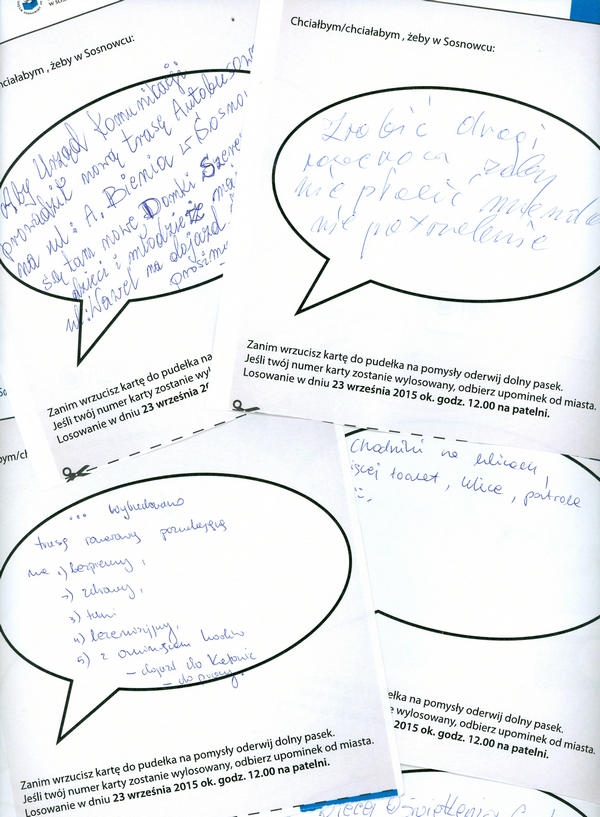 Chciałbym/chciałabym , żeby w Sosnowcu:
Zrobić drogi
rowerowa żeby
nie płacić mandat
nie potrzebnie
Zanim wrzucisz kartę do pudełka na pomysły oderwij dolny pasek.
Jeśli twój numer karty zostanie wylosowany, odbierz upominek od miasta.
Losowanie w dniu 23 września 2015 ok. godz. 12.00 na patelni.
hciałabym , żeby w Sosnowcu:
Aby Urząd Komunikacji
prowadził nową trasę Autobusow
na ul: A. Bienia w Sosno
są tam nowe Domki Szere
dzieci i młodzież ma
ul: Wawel na dojazd
prosim
Zanim wrzucisz kartę do pudełka na
Jeśli twój numer karty zostanie wyl
Losowanie w dniu 23 września 2
... wybudowano
trasę rowerową pozwalającą
na 1) bezpieczny,
2) zdrowy,
3) tani
4) bezemisyjny,
5) z ominięciem korków
- dojazd do Katowic
- do pracy.
Zanim wrzucisz kartę do pudełka na pomysły oderwij dolny pasek.
Jeśli twój numer karty zostanie wylosowany, odbierz upominek od miasta.
Losowanie w dniu 23 września 2015 ok. godz. 12.00 na patelni.
Chodniki na ulicach,
ięcej toalet, ulice, patrole
ełka na pomysły oderwij dolny pasek.
e wylosowany, odbierz upominek od miasta.
2015 ok. godz. 12.00 na patelni.
Więcej Oświetlenia